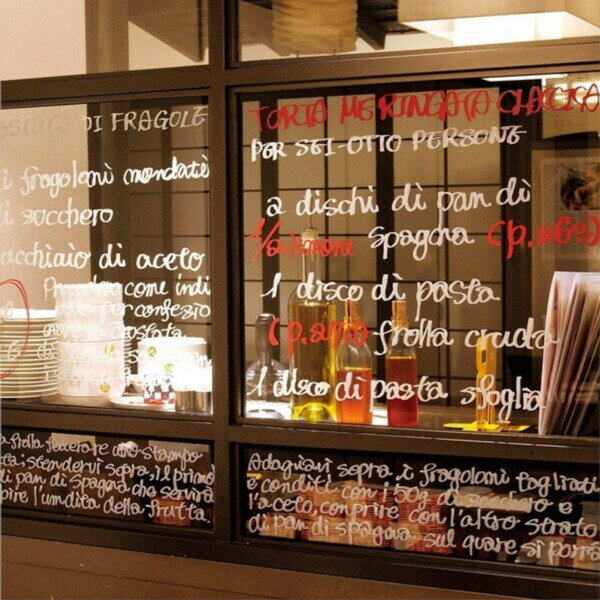 DI FRAGOLE
i fragoloni mondati
di zucchero
acchiaio di aceto
come indi
per confezio
crostata
TORTA MERINGATA
PER SEI-OTTO PERSONE
2 dischi di pan di
spagna (p.
1 disco di pasta
frolla cruda
1 disco di pasta sfoglia
a frolla foderare uno stampo
ta; stendervi sopra, il primo
di pan di spagna che servirà
bire l'umidità della frutta.
Adagiavi sopra i fragoloni tagliati
e conditi con i 50g di zucchero e
l'aceto, coprire con l'altro strato
di pan di spagna sul quare si porrà